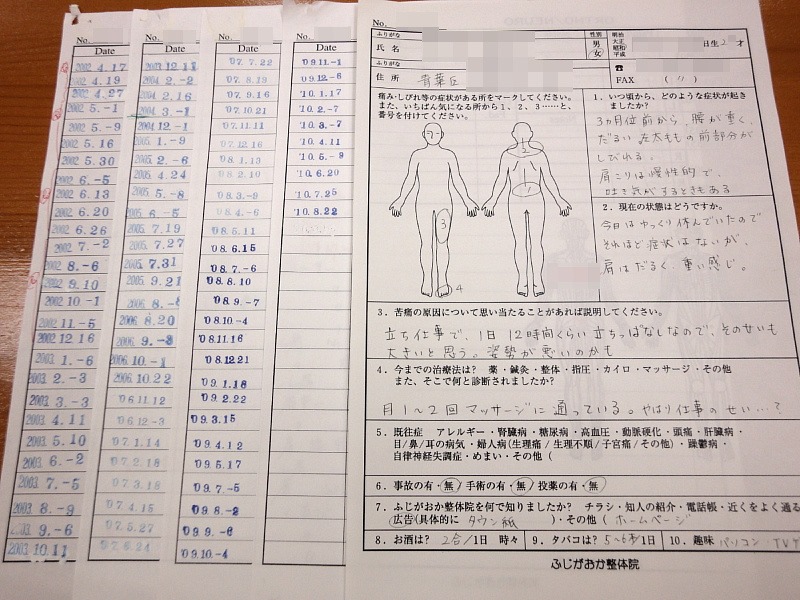 No.
Date
2002. 4.17
2002. 4.19
2002. 4.27
2002. 5.-1
2002. 5.-9
2002. 5.16
2002. 5.30
2002. 6.-5
2002. 6.13
2002. 6.20
2002. 6.26
2002. 7.-2
2002. 8.-6
2002. 9.10
2002. 10.-1
2002. 11.-5
2002. 12.16
2003. 1.-6
2003. 2.-3
2003. 3.-3
2003. 4.11
2003. 5.10
2003. 6.-2
2003. 7.-5
2003. 8.-9
2003. 9.-6
2003. 10.11
No.
Date
2003. 12.11
2004. 2.-2
2004. 2.16
2004. 3.-1
2004. 12.-1
2005. 1.-9
2005. 2.-6
2005. 4.24
2005. 5.-8
2005. 6.-5
2005. 7.19
2005. 7.27
2005. 7.31
2005. 9.21
2006. 8.20
2006. 9.-3
2006. 10.-1
2006. 10.22
'06.11.12
'06.12.-3
'07. 1.14
'07. 2.18
'07. 3.18
'07. 4.15
'07. 5.27
'07. 6.24
No.
Date
'07. 7.22
'07. 8.19
'07. 9.16
'07.10.21
'07.11.11
'07.12.16
'08. 1.13
'08. 2.10
'08. 3.-9
'08. 4.-6
'08. 5.11
'08. 6.15
'08. 7.-6
'08. 8.10
'08. 9.-7
'08.10.-4
'08.11.16
'08.12.21
'09. 1.18
'09. 2.22
'09. 3.15
'09. 4.12
'09. 5.17
'09. 7.-5
'09. 8.-2
'09. 9.-6
'09.10.-4
No.
Date
'09.11.-1
'09.12.-6
'10. 1.17
'10. 2.-7
'10. 3.-7
'10. 4.11
'10. 5.-9
'10. 6.20
'10. 7.25
'10. 8.22
No.
ふりがな
氏名
性別
男
女
明治
大正
昭和
平成
日生2 才
ふりがな
住所 青葉丘
☎
FAX ( 〃 )
痛み・しびれ等の症状がある所をマークしてください。
また、いちばん気になる所から1、2、3……と、
番号を付けてください。
3
4
1. いつ頃から、どのような症状が起き
ましたか?
3ヵ月位前から、腰が重く、
だるい 左太ももの前部分が
しびれる。
肩こりは慢性的で、
吐き気がするときもある
2. 現在の状態はどうですか。
今日はゆっくり休んでいたので
それほど症状はないが、
肩はだるく、重い感じ。
3. 苦痛の原因について思い当たることがあれば説明してください。
立ち仕事で、1日12時間くらい立ちっぱなしなので、そのせいも
大きいと思う。姿勢が悪いのかも
4. 今までの治療法は? 薬・鍼灸・整体・指圧・カイロ・マッサージ・その他
また、そこで何と診断されましたか?
月1〜2回マッサージに通っている。やはり仕事のせい…?
5. 既往症 アレルギー・腎臓病・糖尿病・高血圧・動脈硬化・頭痛・肝臓病・
目/鼻/耳の病気・婦人病(生理痛/生理不順/子宮痛/その他)・躁鬱病・
自律神経失調症・めまい・その他 (
6. 事故の有・無 手術の有・無 投薬の有・無
7. ふじがおか整体院を何で知りましたか? チラシ・知人の紹介・電話帳・近くをよく通る
広告(具体的に タウン紙 )・その他 ( ホームページ
8. お酒は? 2合/1日 時々 9. タバコは? 5〜6本1日 10. 趣味 パソコン・TVゲ
ふじがおか整体院